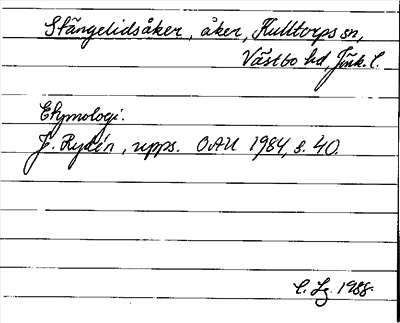 Stängelidsåker, åker, Kulltorps sn,
Västbo hd, Jönk. l.
Etymologi.
J. Rydén, upps. OAU 1984, s. 40.
C. Lg. 1988.